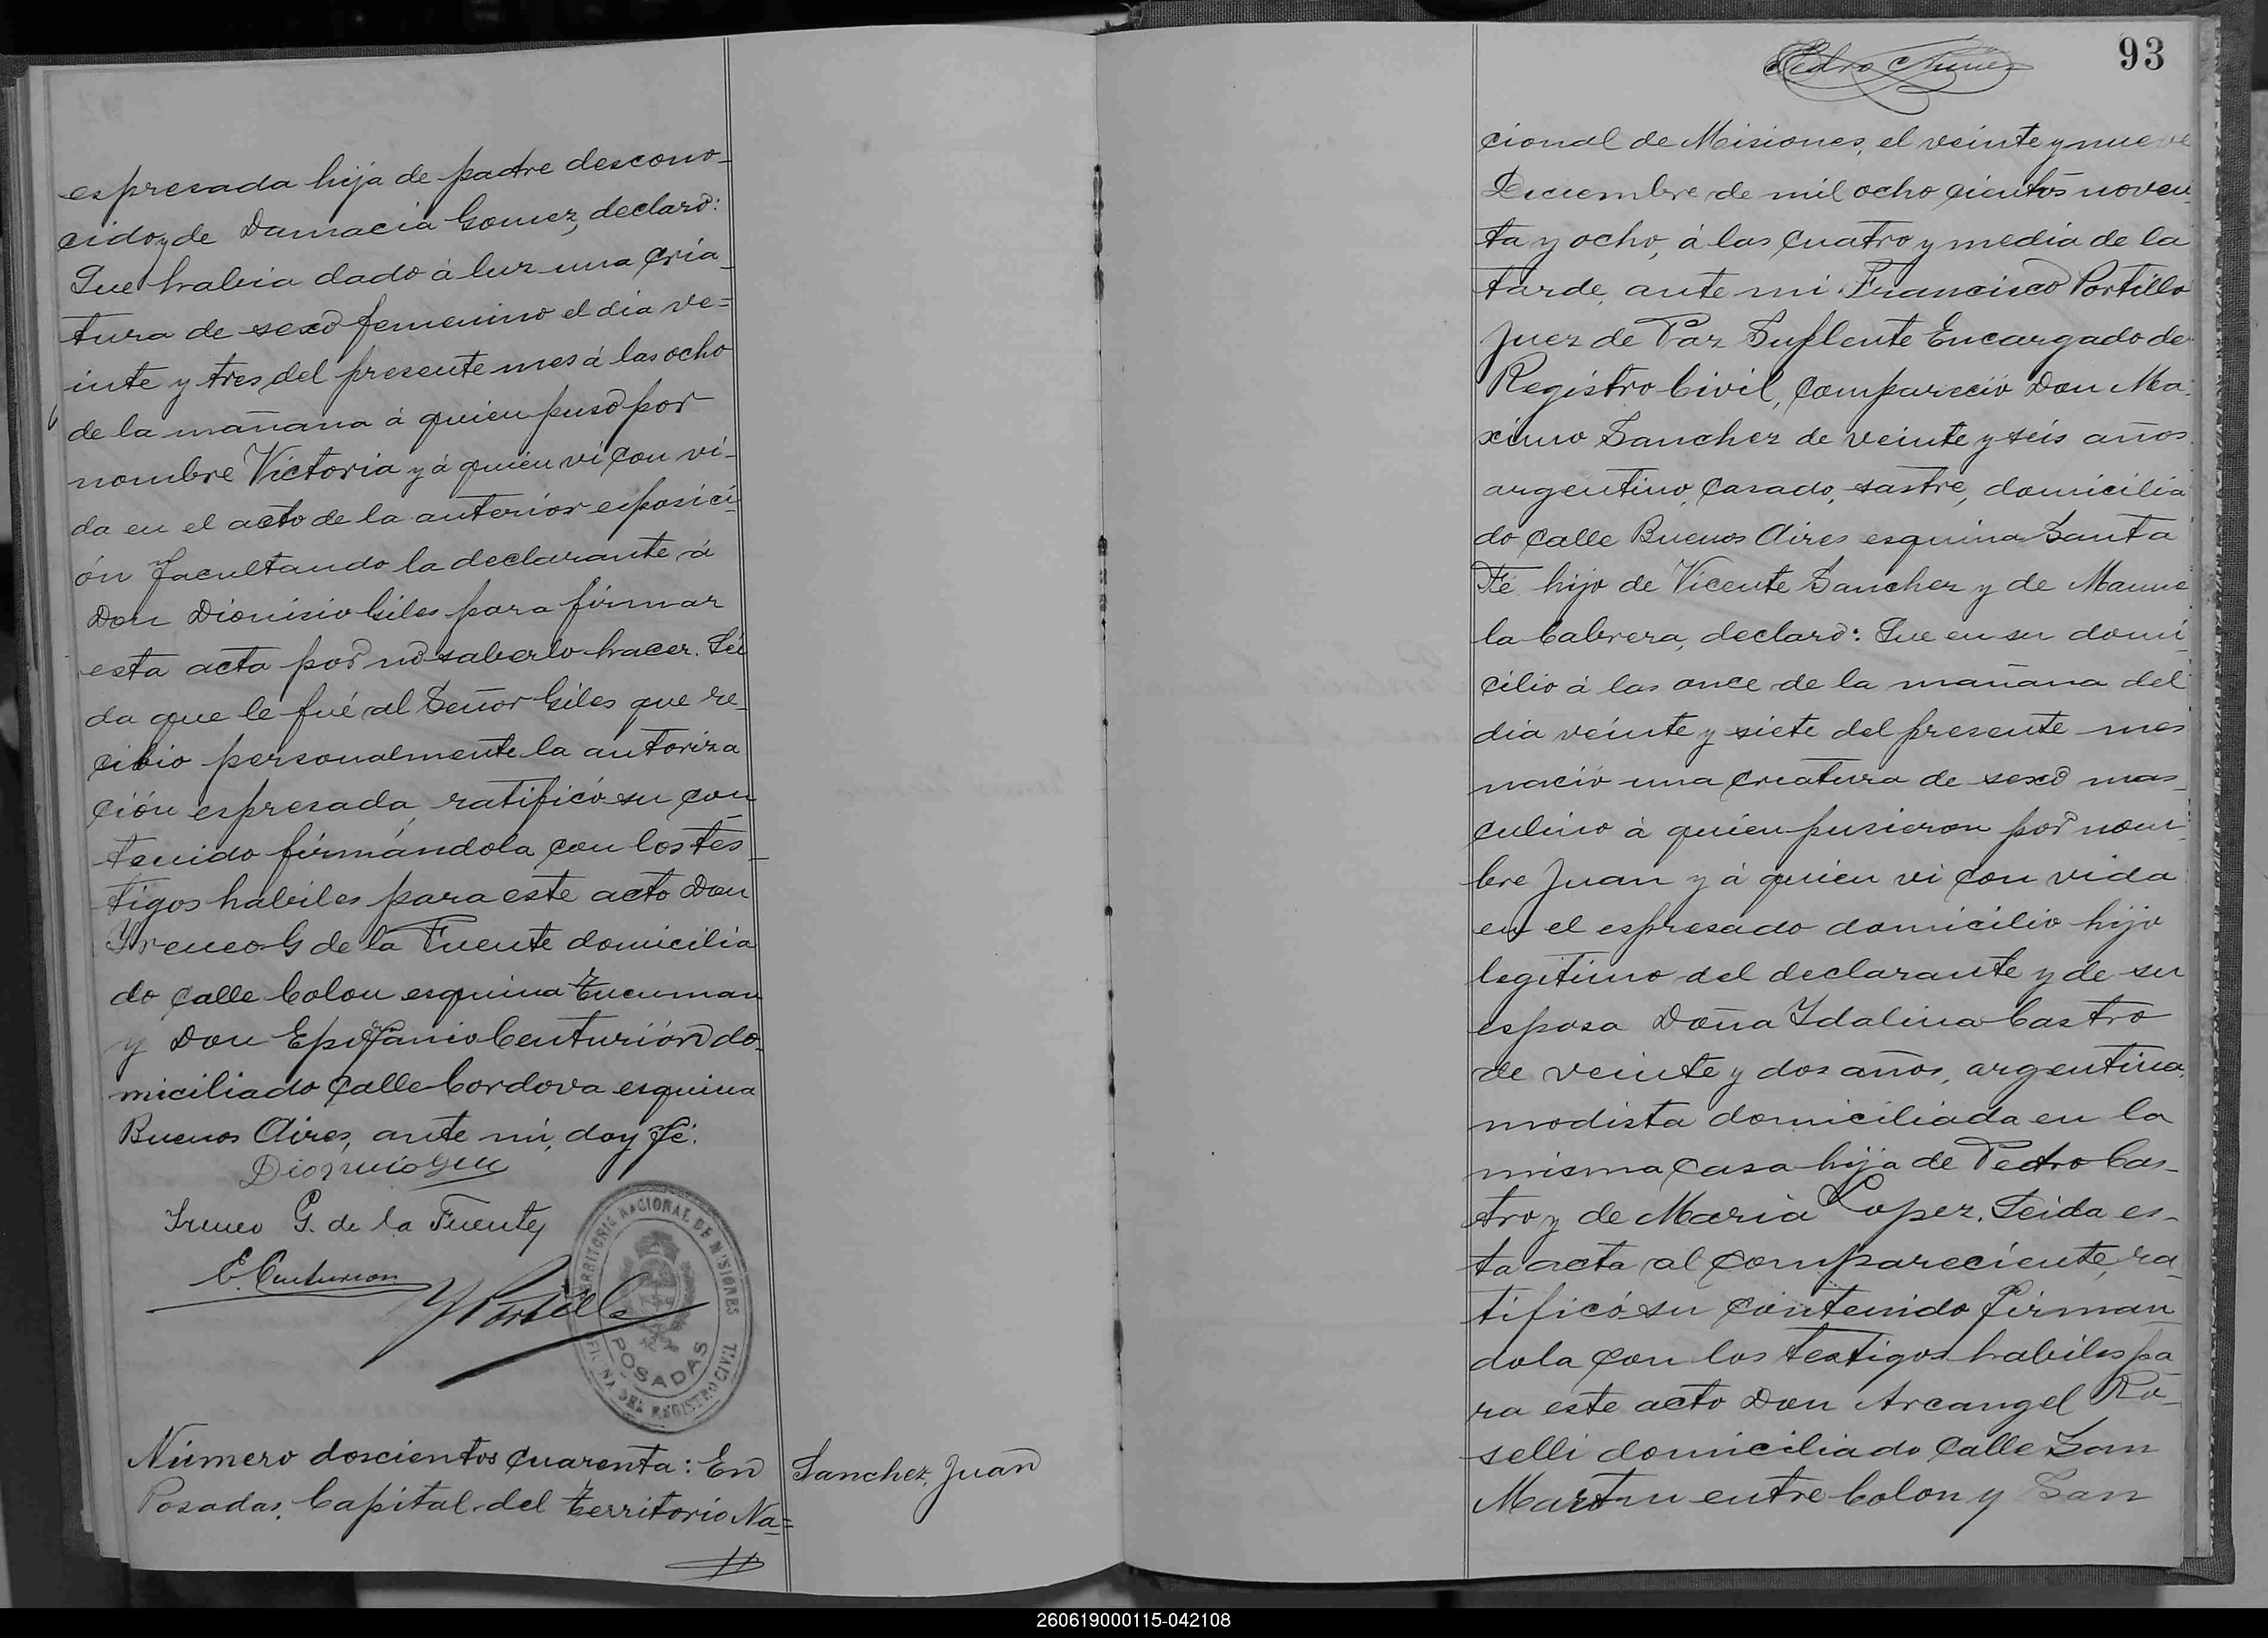 espresada hija de padre descono-
cido y de Damacia Gomez, declaró:
Que habia dado á luz una cria-
tura de sexo femenino el dia ve=
inte y tres del presente mes á las ocho
de la mañana á quien puso por
nombre Victoria y á quien vi con vi-
da en el acto de la anterior esposici-
ón facultando la declarante á
Don Dionisio Giles para firmar
esta acta por no saberlo hacer. Léi
da que le fué al Señor Giles que re-
cibio personalmente la autoriza
ción espresada, ratificó su con
tenido firmándola con los tes-
tigos habiles para este acto Don
Yreneo G de la Fuente domicilia
do calle Colon esquina Tucuman
y Don Epifanio Centurión do-
miciliado calle Cordova esquina
Buenos Aires, ante mi, doy fé.
Dionicio Giles
Ireneo G. de la Fuente
E. Centurion
Portillo
TERRITORIO NACIONAL DE MISIONES
POSADAS
OFICINA DEL REGISTRO CIVIL
Número doscientos cuarenta: En
Posadas, Capital del Territorio Na=
Sanchez, Juan
Pedro Nuñez
93
cional de Misiones, el veinte y nueve
Diciembre de mil ocho cientos noven
ta y ocho, á las cuatro y media de la
tarde, ante mi Francisco Portillo
Juez de Paz Suplente Encargado de
Registro Civil, compareció Don Ma-
ximo Sanchez de veinte y seis años
argentino, casado, sastre, domicilia
do calle Buenos Aires esquina Santa
Fé hijo de Vicente Sanchez y de Manue
la Cabrera, declaró: Que en su domi
cilio á las once de la mañana del
dia veinte y siete del presente mes
nació una criatura de sexo mas-
culino á quien pusieron por nom
bre Juan y á quien vi con vida
en el espresado domicilio hijo
legitimo del declarante y de su
esposa Doña Idalina Castro
de veinte y dos años, argentina,
modista domiciliada en la
misma casa hija de Pedro Cas-
tro y de Maria Lopez. Leida es-
ta acta al compareciente, ra-
tificó su contenido firman
dola con los testigos habiles pa
ra este acto Don Arcangel Ro-
selli domiciliado calle San
Martin entre Colon y San
260619000115-042108